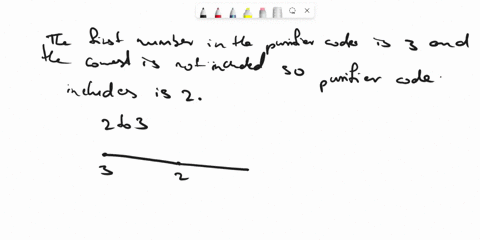 The first number in the purifier codes is 3 and
the is not included so purifier code
includes is 2.
2 to 3
3 2